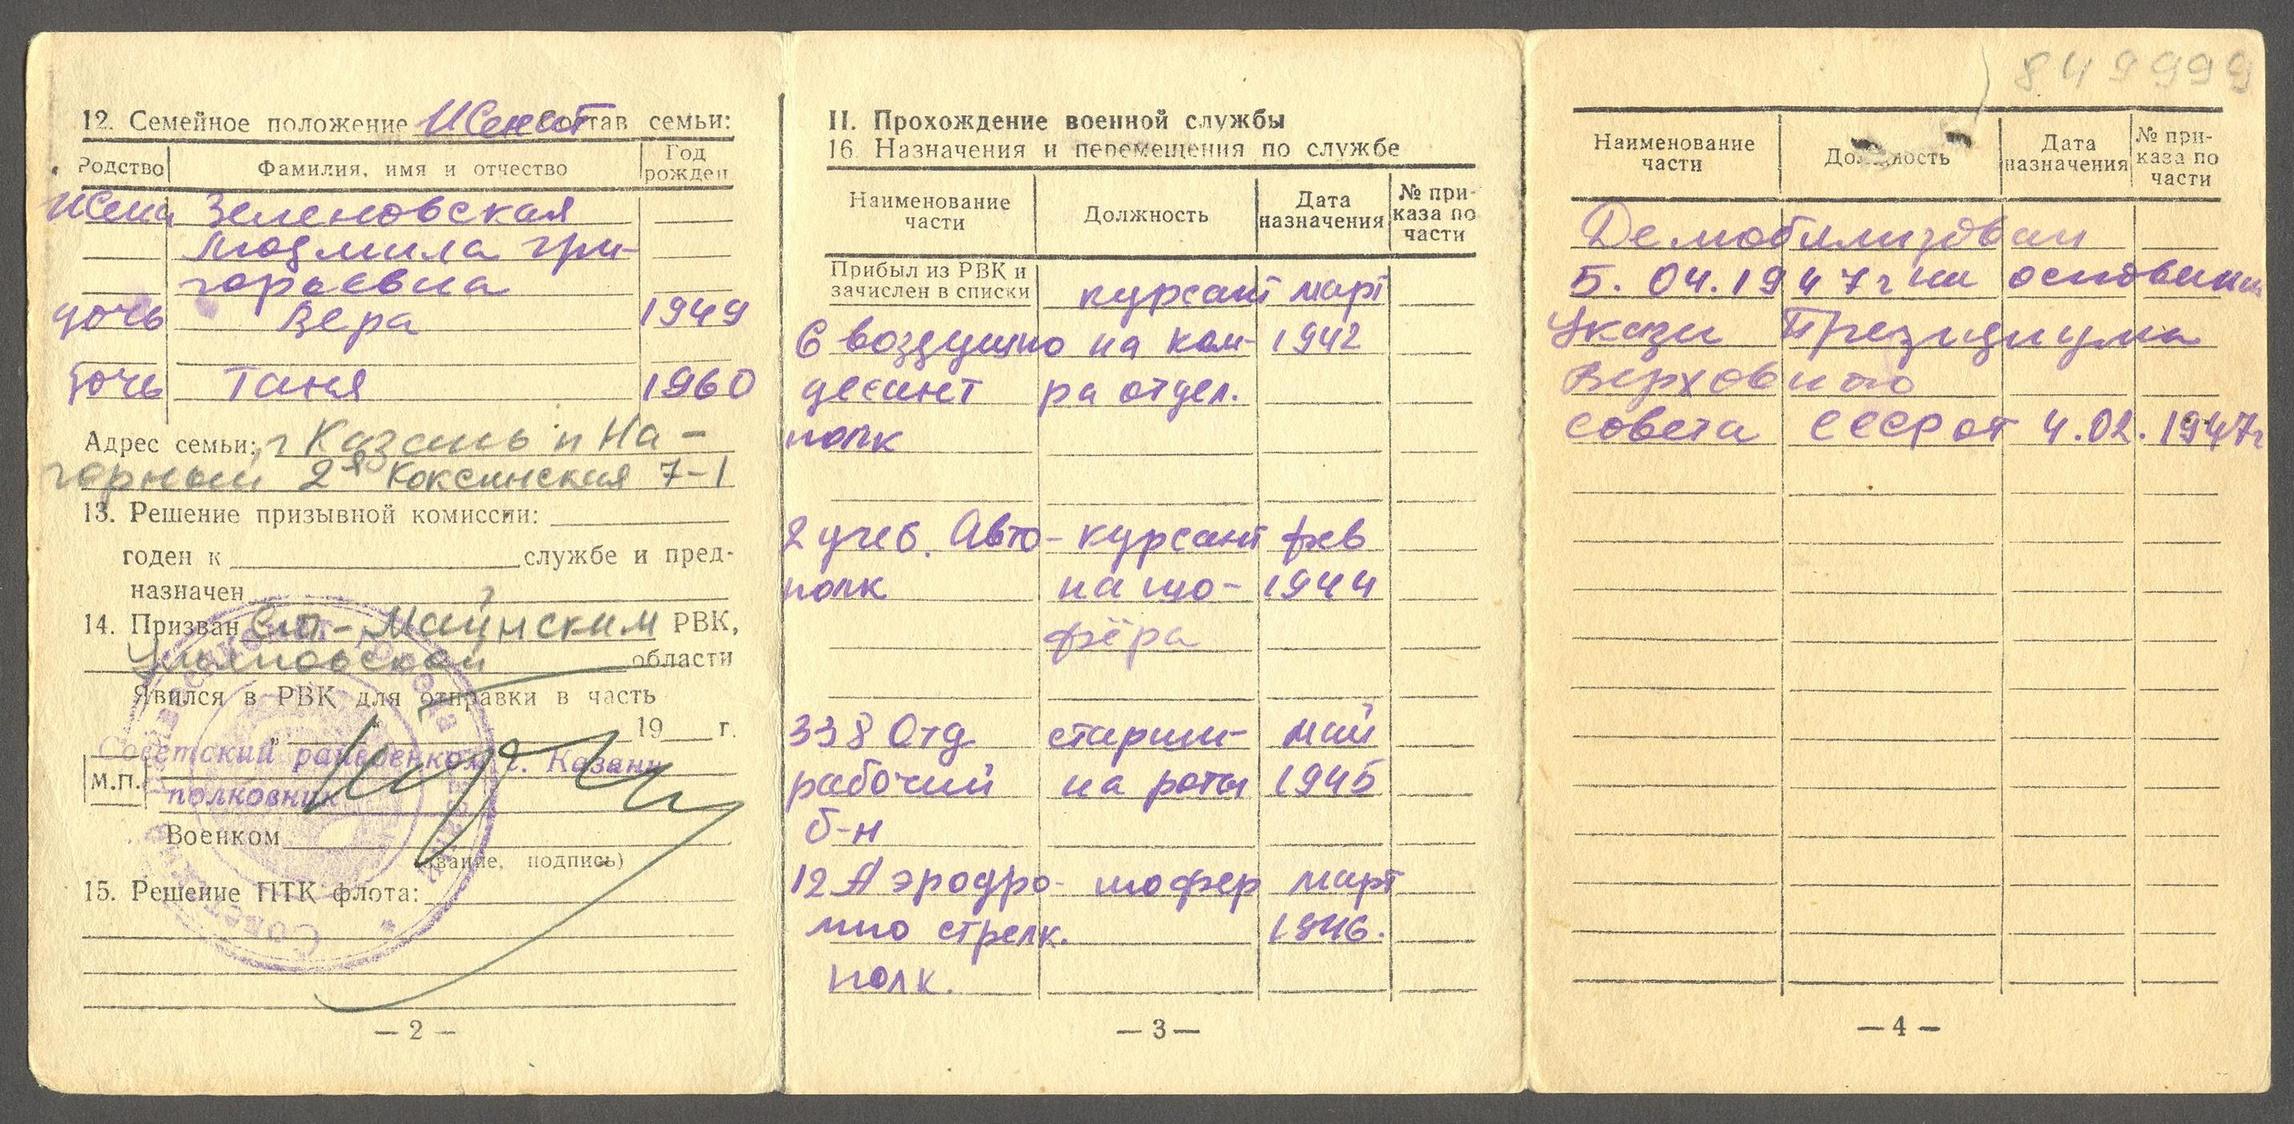 12. Семейное положение Женат Состав семьи:
Родство Фамилия, имя и отчество Год рожден
Жена Зеленовская
Людмила Гри-
горьевна
дочь Вера 1949
дочь Таня 1960
Адрес семьи: г Казань п На-
горный 2я Юксинская 7-1
13. Решение призывной комиссии:
годен к службе и пред-
назначен
14. Призван Ст-Майнским РВК,
Ульяновской области
Явился в РВК для отправки в часть
" 19 г.
Советский райвоенком г. Казани
М.П. полковник
Военком
(звание, подпись)
15. Решение ПТК флота:
— 2 —
II. Прохождение военной службы
16. Назначения и перемещения по службе
Наименование части Должность Дата назначения № при-каза по части
Прибыл из РВК и
зачислен в списки курсант март
6 воздушно на ком- 1942
десант ра отдел.
полк
2 учеб. Авто- курсант фев
полк на шо- 1944
фёра
338 Отд старши- май
рабочий на роты 1945
б-н
12 Аэродро- шофер март
мно стрелк. 1946.
полк.
— 3 —
849999
Наименование части Должность Дата назначения № при-каза по части
Демобилизован
5.04.1947г на основании
Указа Президиума
Верховного
совета СССР от 4.02.1947г
— 4 —